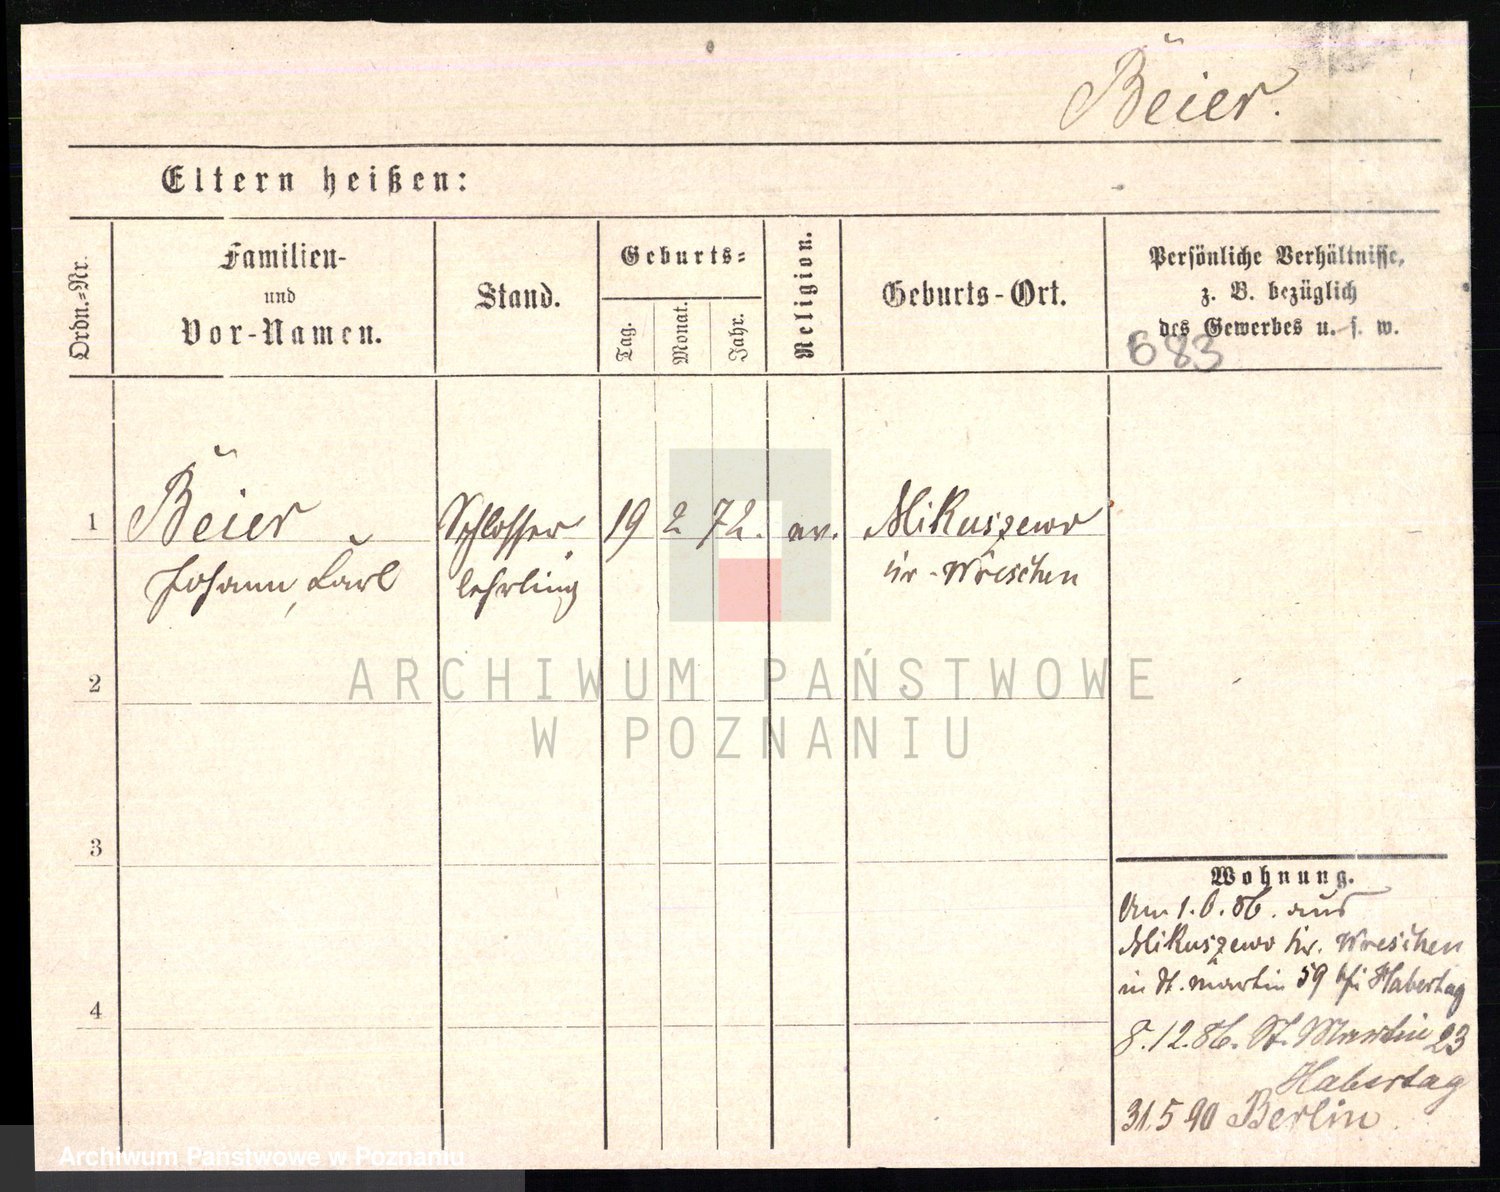 Beier.
Eltern heißen:
Ordn.=Nr.
Familien-
und
Vor-Namen.
Stand.
Geburts=
Tag.
Monat.
Jahr.
Religion.
Geburts-Ort.
Persönliche Verhältnisse,
z. B. bezüglich
des Gewerbes u. s. w.
683
1 Beier Schlosser 19 2 72. ev. Mikuszewo
Johann, Carl lehrling Kr. Wreschen
2
3
4
Wohnung.
Am 1.6.86. aus
Mikuszewo Kr. Wreschen
in St. Martin 59 bei Habertag
8.12.86. St. Martin 23
Habertag
31.5 90 Berlin
ARCHIWUM PAŃSTWOWE
W POZNANIU
Archiwum Państwowe w Poznaniu